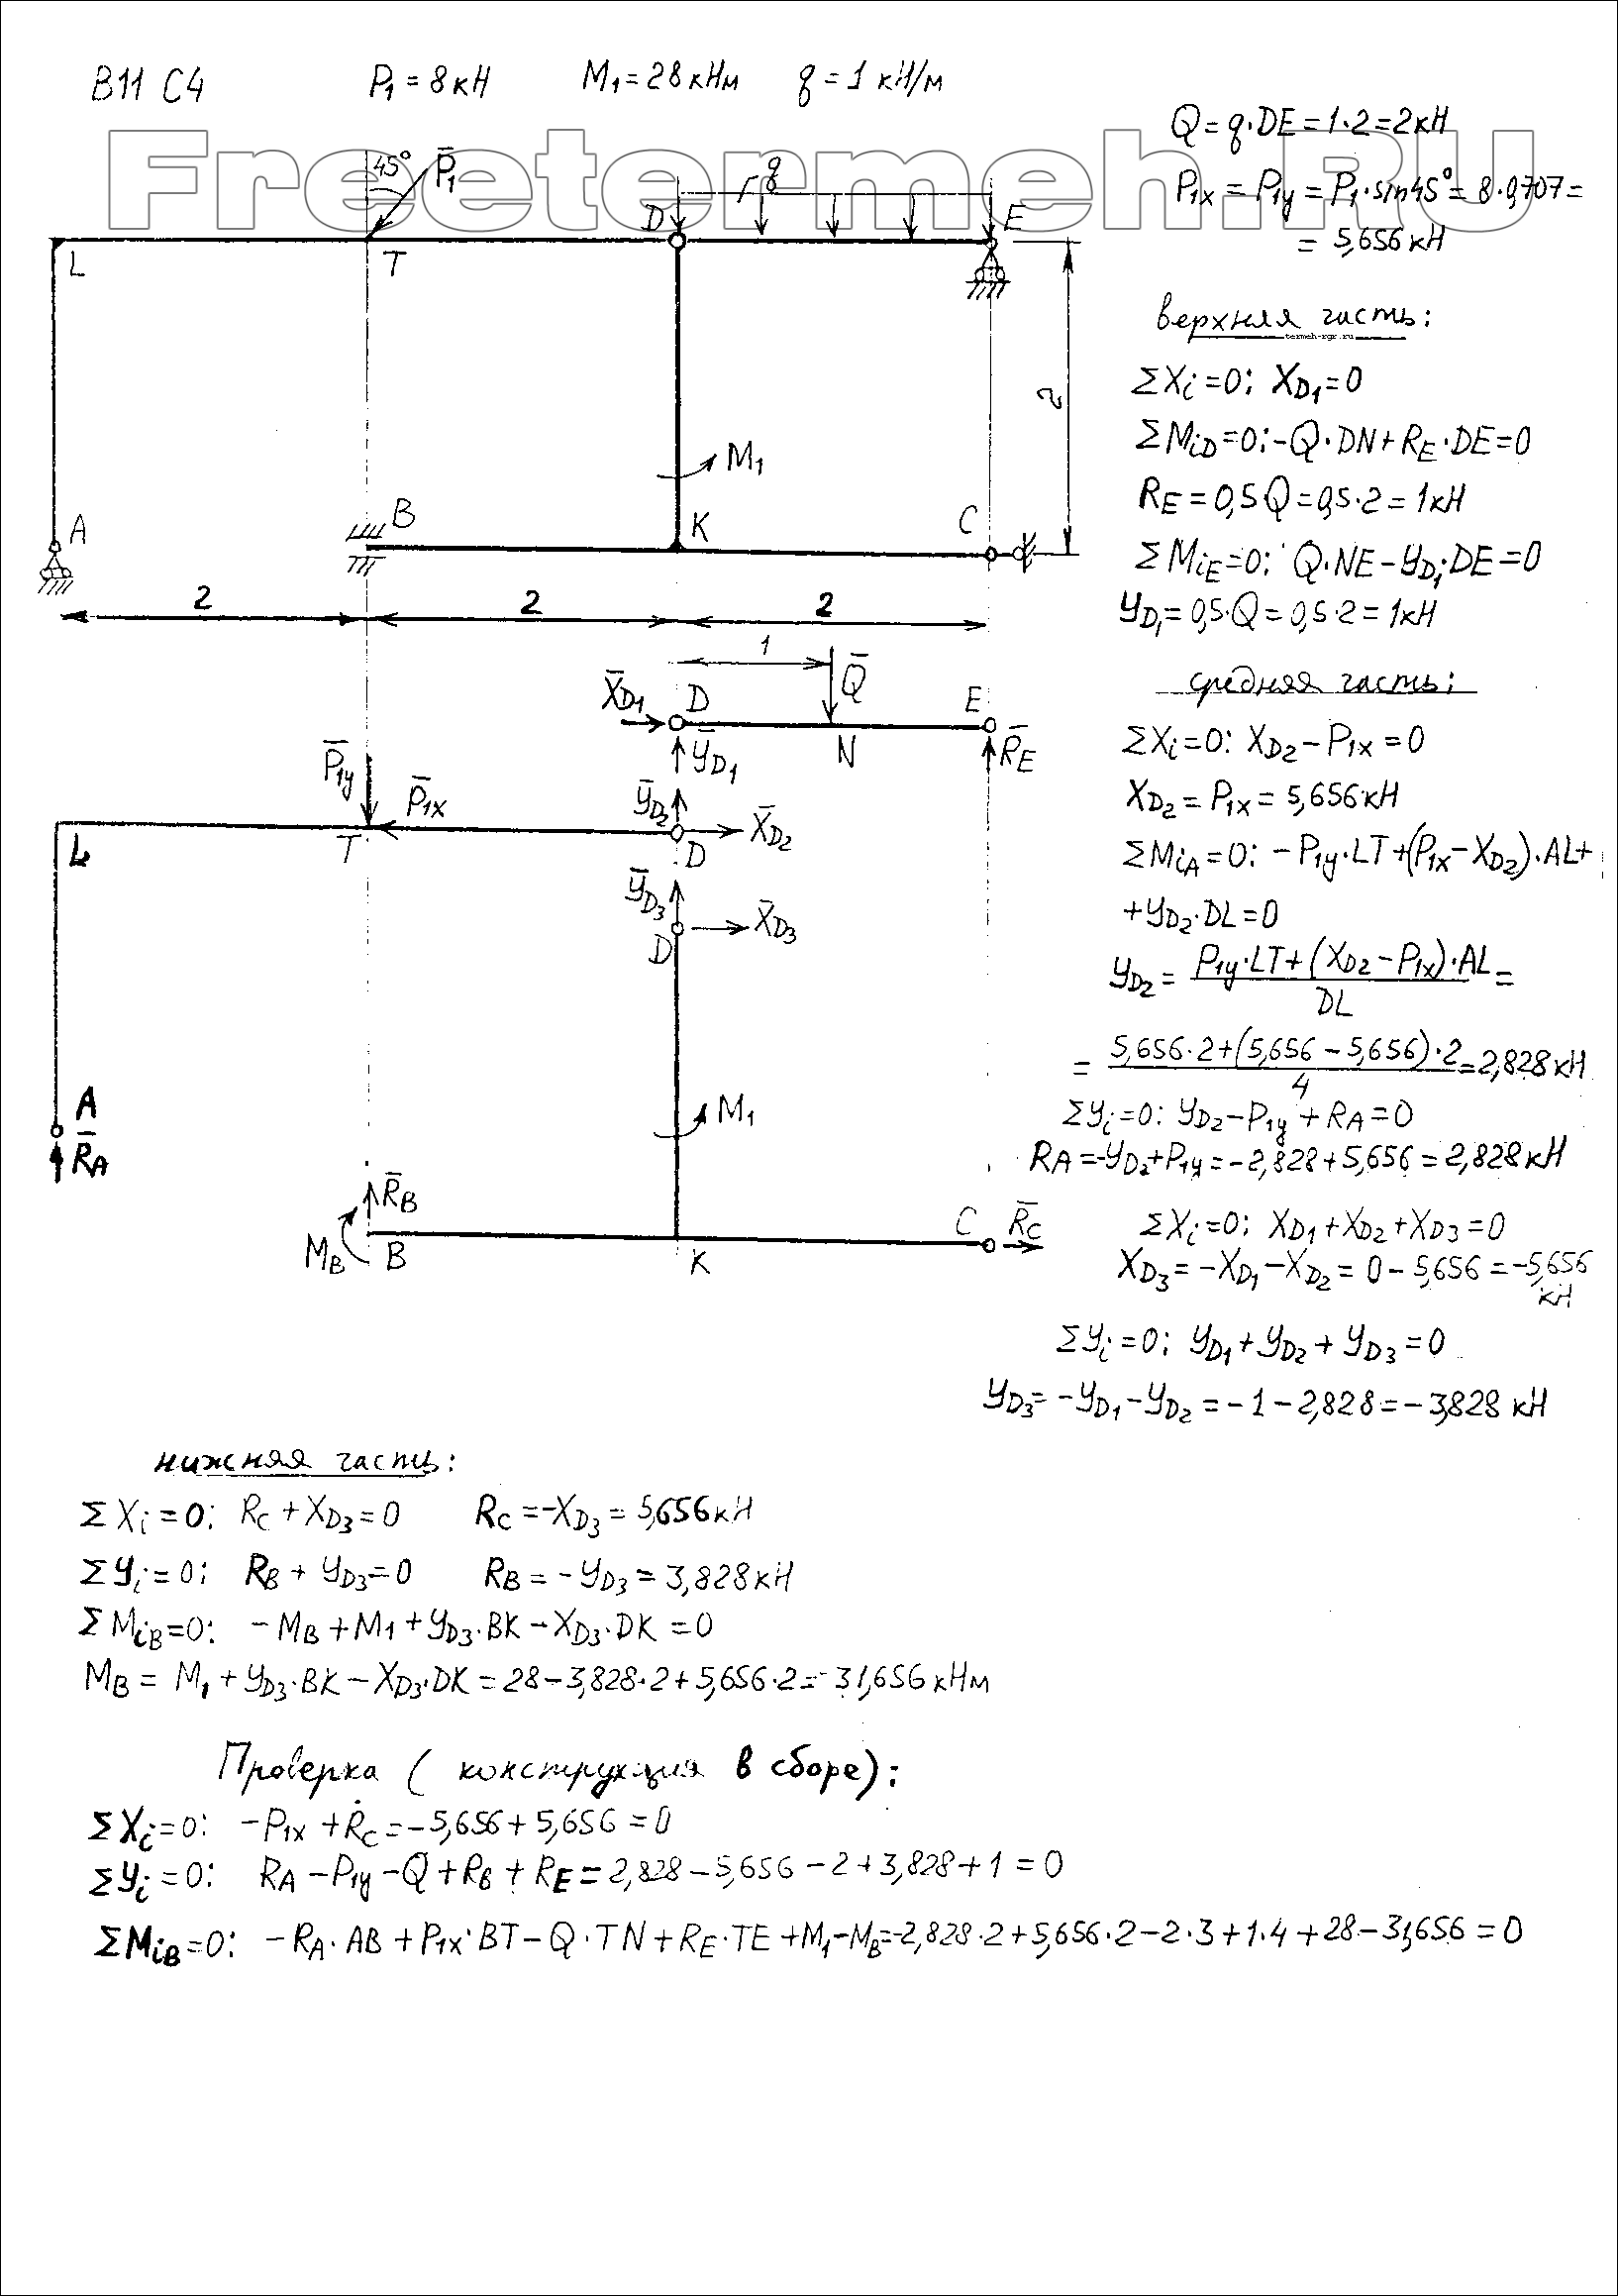 В11 С4 P₁ = 8 кН M₁ = 28 кНм q = 1 кН/м
Freetermeh.RU
Q = q·DE = 1·2 = 2кН
P₁x = P₁y = P₁·sin45° = 8·0,707 =
= 5,656 кН
45° P̄₁ q
L T D E
2
M₁
A B K C
2 2 2
верхняя часть:
termeh-rgr.ru
ΣXi=0: XD₁=0
ΣMiD=0: -Q·DN+RE·DE=0
RE = 0,5Q = 0,5·2 = 1кН
ΣMiE=0: Q·NE - YD₁·DE = 0
YD₁ = 0,5·Q = 0,5·2 = 1кН
1 Q̄
X̄D₁ D E
ȲD₁ N R̄E
P̄₁y P̄₁x ȲD₂ X̄D₂
L T D
ȲD₃ X̄D₃
D
M₁
A
R̄A
R̄B
MB B K C R̄C
средняя часть:
ΣXi=0: XD₂ - P₁x = 0
XD₂ = P₁x = 5,656кН
ΣMiA=0: -P₁y·LT+(P₁x-XD₂)·AL+
+YD₂·DL=0
YD₂ = (P₁y·LT+(XD₂-P₁x)·AL)/DL =
= (5,656·2+(5,656-5,656)·2)/4 = 2,828кН
ΣYi=0: YD₂ - P₁y + RA = 0
RA = -YD₂+P₁y = -2,828+5,656 = 2,828кН
ΣXi=0: XD₁+XD₂+XD₃=0
XD₃ = -XD₁-XD₂ = 0-5,656 = -5,656
кН
ΣYi=0: YD₁+YD₂+YD₃=0
YD₃ = -YD₁-YD₂ = -1-2,828 = -3,828 кН
нижняя часть:
ΣXi=0: RC + XD₃ = 0 RC = -XD₃ = 5,656кН
ΣYi=0: RB + YD₃ = 0 RB = -YD₃ = 3,828кН
ΣMiB=0: -MB + M1 + YD₃·BK - XD₃·DK = 0
MB = M₁ + YD₃·BK - XD₃·DK = 28-3,828·2+5,656·2 = 31,656 кНм
Проверка (конструкция в сборе):
ΣXi=0: -P₁x + RC = -5,656+5,656 = 0
ΣYi=0: RA - P₁y - Q + RB + RE = 2,828-5,656-2+3,828+1 = 0
ΣMiB=0: -RA·AB + P₁x·BT - Q·TN + RE·TE + M₁ - MB = -2,828·2+5,656·2-2·3+1·4+28-31,656 = 0